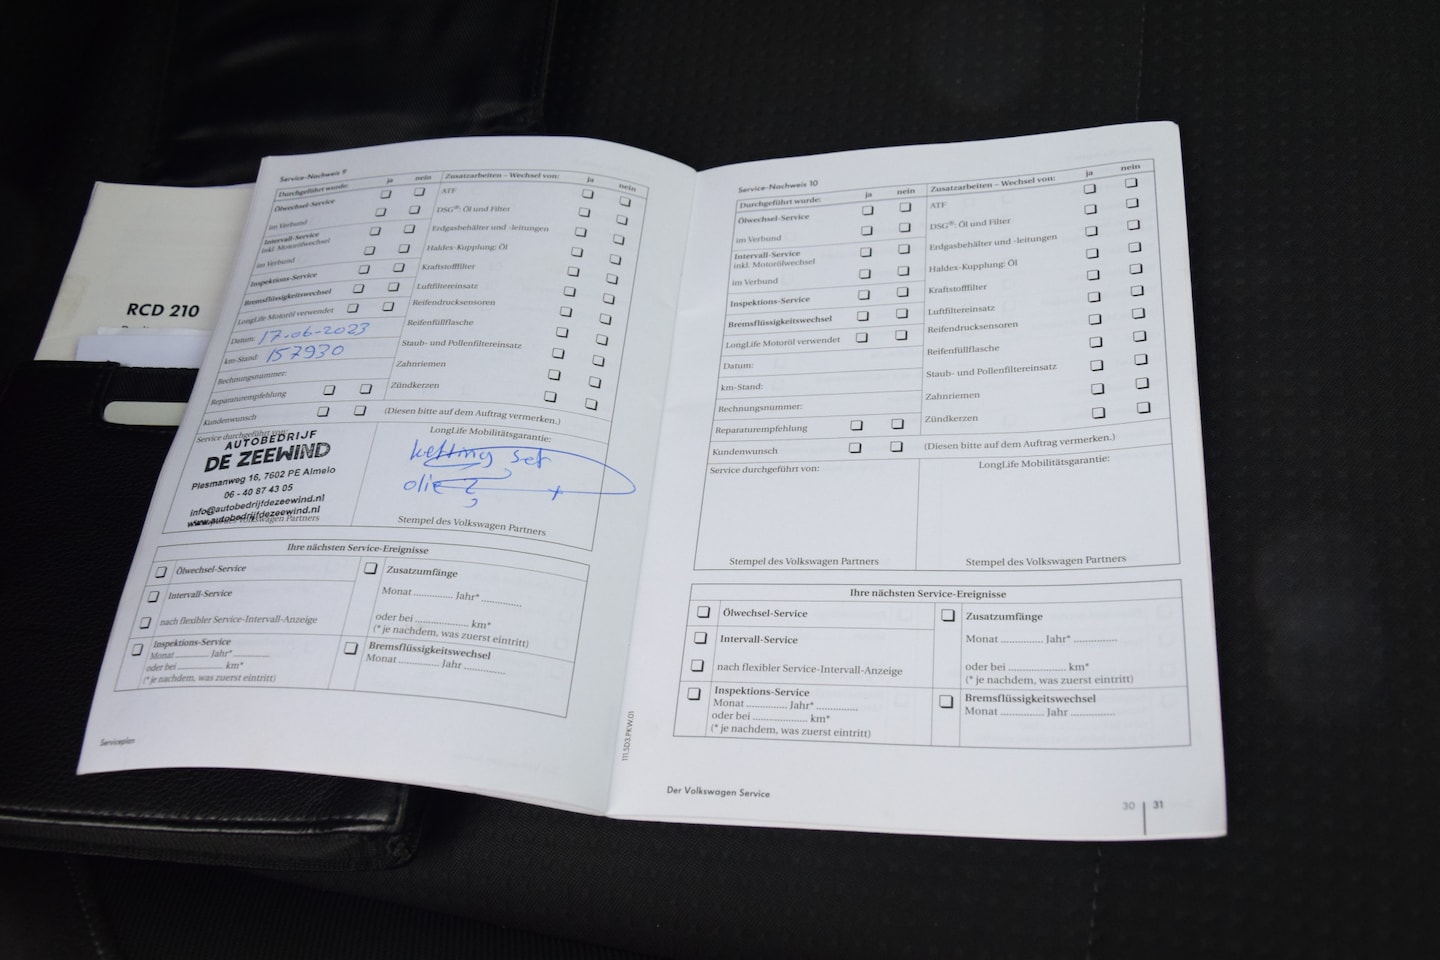 RCD 210
Service-Nachweis 9
Durchgeführt wurde: ja nein
Ölwechsel-Service
im Verbund
Intervall-Service
inkl. Motorölwechsel
im Verbund
Inspektions-Service
Bremsflüssigkeitswechsel
LongLife Motoröl verwendet
Datum: 17-06-2023
km-Stand: 157930
Rechnungsnummer:
Reparaturempfehlung
Kundenwunsch
Zusatzarbeiten – Wechsel von: ja nein
ATF
DSG®: Öl und Filter
Erdgasbehälter und -leitungen
Haldex-Kupplung: Öl
Kraftstofffilter
Luftfiltereinsatz
Reifendrucksensoren
Reifenfüllflasche
Staub- und Pollenfiltereinsatz
Zahnriemen
Zündkerzen
(Diesen bitte auf dem Auftrag vermerken.)
Service durchgeführt von:
AUTOBEDRIJF
DE ZEEWIND
Plesmanweg 16, 7602 PE Almelo
06 - 40 87 43 05
info@autobedrijfdezeewind.nl
www.autobedrijfdezeewind.nl
Partners
LongLife Mobilitätsgarantie:
ketting set
olie
Stempel des Volkswagen Partners
Ihre nächsten Service-Ereignisse
Ölwechsel-Service
Intervall-Service
nach flexibler Service-Intervall-Anzeige
Inspektions-Service
Monat .............. Jahr* ..............
oder bei .................. km*
(* je nachdem, was zuerst eintritt)
Zusatzumfänge
Monat .............. Jahr* ..............
oder bei .................. km*
(* je nachdem, was zuerst eintritt)
Bremsflüssigkeitswechsel
Monat .............. Jahr ..............
Serviceplan
111.5D3.PKW.01
Service-Nachweis 10
Durchgeführt wurde: ja nein
Ölwechsel-Service
im Verbund
Intervall-Service
inkl. Motorölwechsel
im Verbund
Inspektions-Service
Bremsflüssigkeitswechsel
LongLife Motoröl verwendet
Datum:
km-Stand:
Rechnungsnummer:
Reparaturempfehlung
Kundenwunsch
Zusatzarbeiten – Wechsel von: ja nein
ATF
DSG®: Öl und Filter
Erdgasbehälter und -leitungen
Haldex-Kupplung: Öl
Kraftstofffilter
Luftfiltereinsatz
Reifendrucksensoren
Reifenfüllflasche
Staub- und Pollenfiltereinsatz
Zahnriemen
Zündkerzen
(Diesen bitte auf dem Auftrag vermerken.)
Service durchgeführt von:
Stempel des Volkswagen Partners
LongLife Mobilitätsgarantie:
Stempel des Volkswagen Partners
Ihre nächsten Service-Ereignisse
Ölwechsel-Service
Intervall-Service
nach flexibler Service-Intervall-Anzeige
Inspektions-Service
Monat .............. Jahr* ..............
oder bei .................. km*
(* je nachdem, was zuerst eintritt)
Zusatzumfänge
Monat .............. Jahr* ..............
oder bei .................. km*
(* je nachdem, was zuerst eintritt)
Bremsflüssigkeitswechsel
Monat .............. Jahr ..............
Der Volkswagen Service
30 31